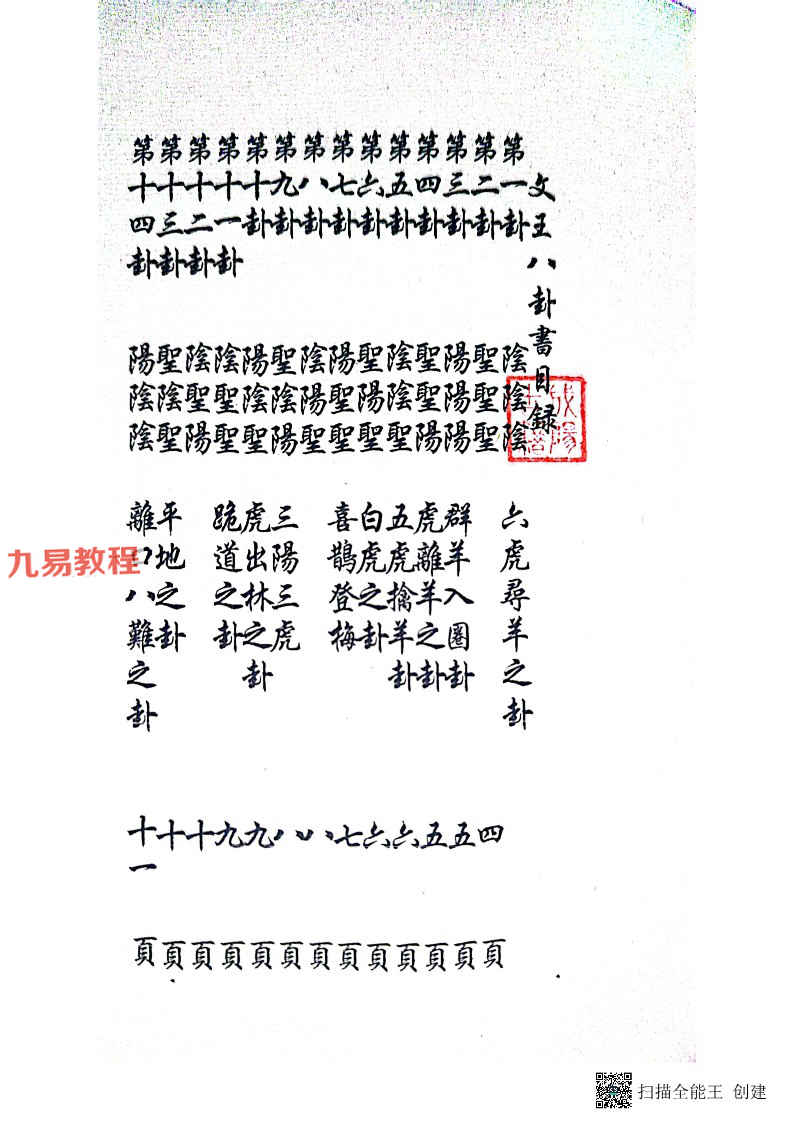 文王八卦書目録
第一卦 陰陰陰 六虎尋羊之卦
第二卦 聖聖聖 四頁
第三卦 陽陽陽 群羊入圈卦 五頁
第四卦 聖聖陽 虎離羊之卦 五頁
第五卦 陰陰聖 五虎擒羊卦 六頁
第六卦 聖陽聖 白虎之卦 六頁
第七卦 陽聖聖 喜鵲登梅 七頁
第八卦 陰陽聖 八頁
第九卦 聖陰陽 三陽三虎 八頁
第十卦 陽陰聖 虎出林之卦 九頁
第十一卦 陰聖聖 跪道之卦 九頁
第十二卦 陰聖陽 十頁
第十三卦 聖陰聖 平地之卦 十頁
第十四卦 陽陰陰 離八難之卦 十一頁
九易教程
扫描全能王 创建